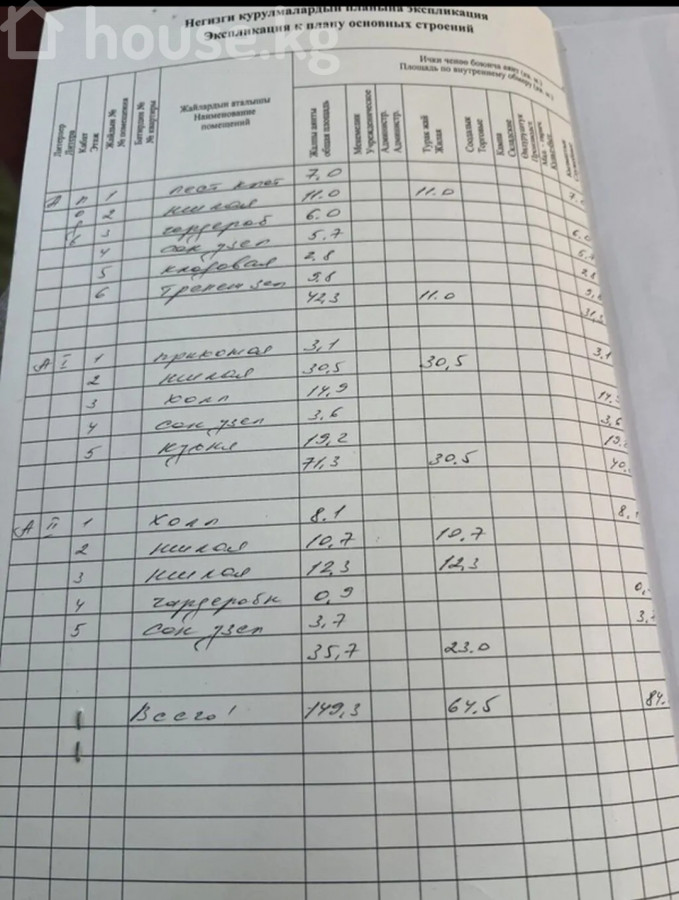 house.kg
Негизги курулмалардын планына экспликация
Экспликация к плану основных строений
Ички ченөө боюнча аянт (кв. м.)
Площадь по внутреннему обмеру (кв. м.)
Литерлер
Литера
Кабат
Этаж
Жайдын №
№ помещения
Батирдин №
№ квартиры
Жайлардын аталышы
Наименование
помещений
Жалпы аянты
общая площадь
Мекемелик
Учрежденческое
Администр.
Администр.
Турак жай
Жилая
Соодалык
Торговые
Кампа
Складские
А п 1 лест клет 7,0 7,
о 2 жилая 11.0 11.0
3 гардероб 6.0 6.0
4 сан узел 5.7 5,
5 кладовая 2,8 2,8
6 тренаж зал 9,8 9,
42,3 11.0 31,
А I 1 прихожая 3,1 3,1
2 жилая 30,5 30,5
3 холл 14,9 14,
4 сан узел 3,6 3,6
5 кухня 19,2 19,
71,3 30.5 40,
А II 1 холл 8.1 8,
2 жилая 10,7 10.7
3 жилая 12,3 12,3
4 гардеробн 0,9 0,
5 сан узел 3,7 3,
35,7 23.0
Всего! 149,3 64.5 84.